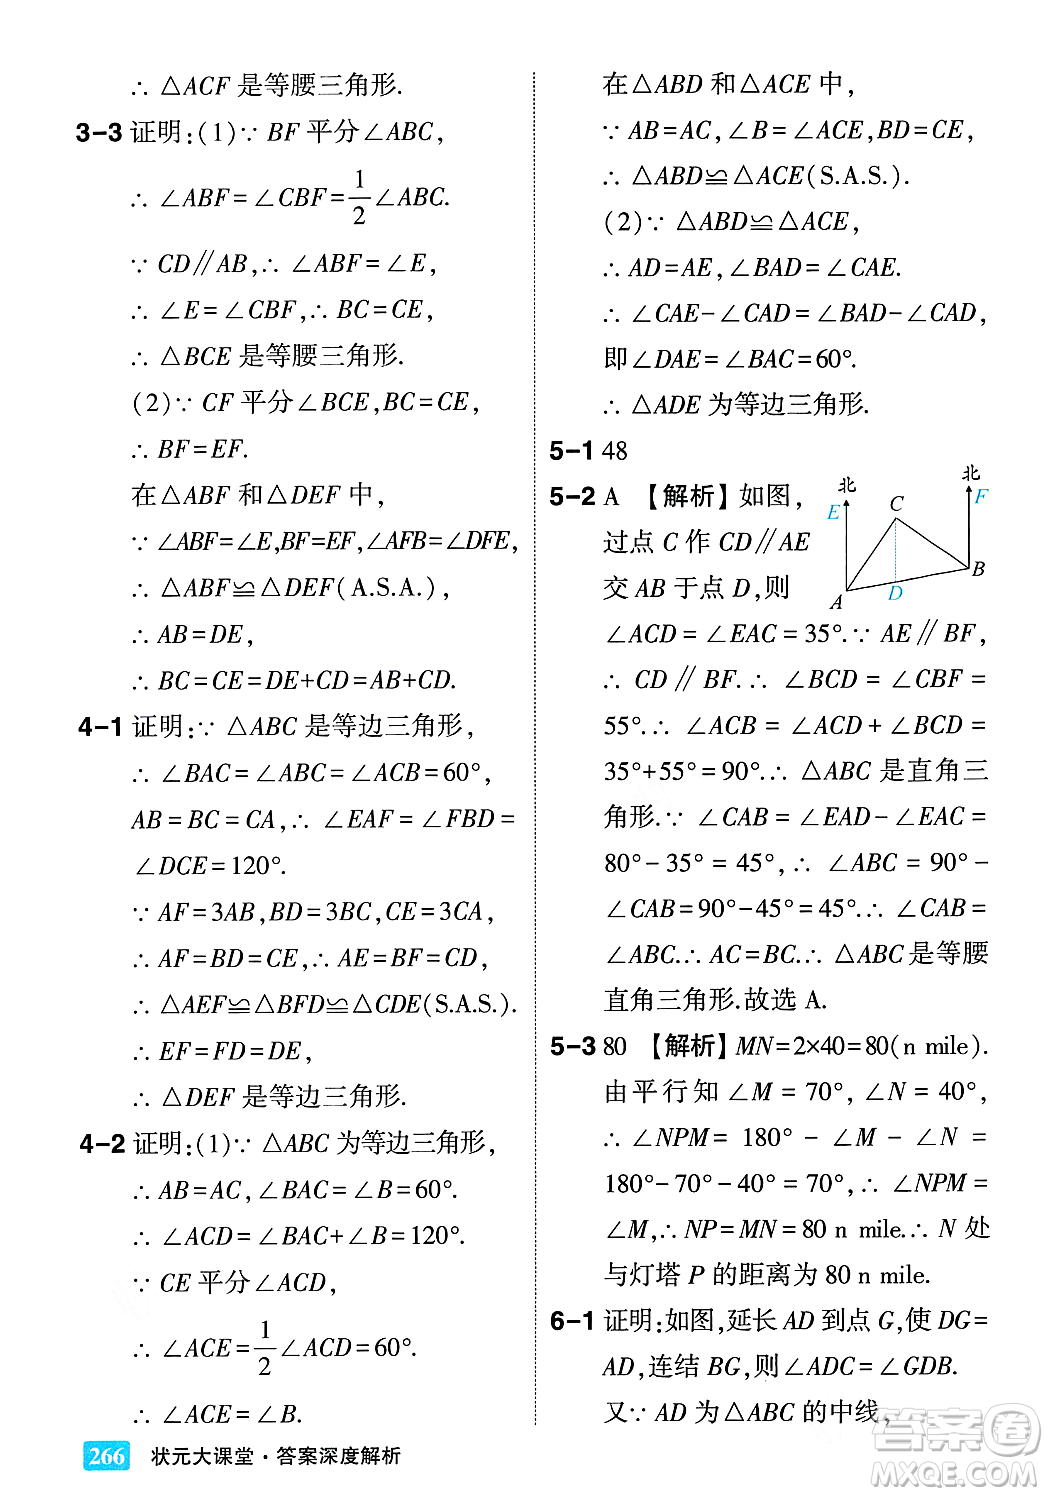 ∴ △ACF 是等腰三角形.
3-3 证明:(1)∵ BF 平分∠ABC,
∴ ∠ABF=∠CBF=1/2∠ABC.
∵ CD∥AB,∴ ∠ABF=∠E,
∴ ∠E=∠CBF,∴ BC=CE,
∴ △BCE 是等腰三角形.
(2)∵ CF 平分∠BCE,BC=CE,
∴ BF=EF.
在△ABF 和△DEF 中,
∵ ∠ABF=∠E,BF=EF,∠AFB=∠DFE,
∴ △ABF≌△DEF(A.S.A.),
∴ AB=DE,
∴ BC=CE=DE+CD=AB+CD.
4-1 证明:∵ △ABC 是等边三角形,
∴ ∠BAC=∠ABC=∠ACB=60°,
AB=BC=CA,∴ ∠EAF=∠FBD=
∠DCE=120°.
∵ AF=3AB,BD=3BC,CE=3CA,
∴ AF=BD=CE,∴ AE=BF=CD,
∴ △AEF≌△BFD≌△CDE(S.A.S.).
∴ EF=FD=DE,
∴ △DEF 是等边三角形.
4-2 证明:(1)∵ △ABC 为等边三角形,
∴ AB=AC,∠BAC=∠B=60°.
∴ ∠ACD=∠BAC+∠B=120°.
∵ CE 平分∠ACD,
∴ ∠ACE=1/2∠ACD=60°.
∴ ∠ACE=∠B.
在△ABD 和△ACE 中,
∵ AB=AC,∠B=∠ACE,BD=CE,
∴ △ABD≌△ACE(S.A.S.).
(2)∵ △ABD≌△ACE,
∴ AD=AE,∠BAD=∠CAE.
∴ ∠CAE-∠CAD=∠BAD-∠CAD,
即∠DAE=∠BAC=60°.
∴ △ADE 为等边三角形.
5-1 48
5-2 A 【解析】如图,
过点 C 作 CD∥AE
交 AB 于点 D,则
北
E
C
北
F
A
D
B
∠ACD=∠EAC=35°.∵ AE∥BF,
∴ CD∥BF.∴ ∠BCD=∠CBF=
55°.∴ ∠ACB=∠ACD+∠BCD=
35°+55°=90°.∴ △ABC 是直角三
角形.∵ ∠CAB=∠EAD-∠EAC=
80°-35°=45°,∴ ∠ABC=90°-
∠CAB=90°-45°=45°.∴ ∠CAB=
∠ABC.∴ AC=BC.∴ △ABC 是等腰
直角三角形.故选 A.
5-3 80 【解析】MN=2×40=80(n mile).
由平行知∠M=70°,∠N=40°,
∴ ∠NPM=180°-∠M-∠N=
180°-70°-40°=70°,∴ ∠NPM=
∠M,∴ NP=MN=80 n mile.∴ N 处
与灯塔 P 的距离为 80 n mile.
6-1 证明:如图,延长 AD 到点 G,使 DG=
AD,连结 BG,则∠ADC=∠GDB.
又∵ AD 为△ABC 的中线,
266 状元大课堂·答案深度解析
答案圈
MXQE.COM